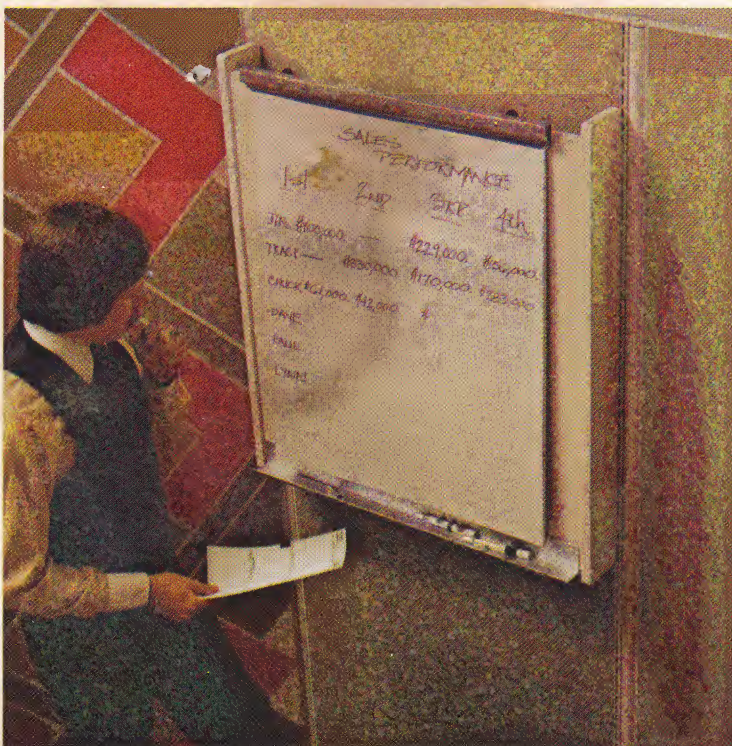 SALES
PERFORMANCE
1st 2ND 3RD 4th
JIM $100,000. — $229,000. $56,000.
— $350,000 $170,000.
CHUCK $62,000. $42,000 $
DAVE
PAUL
LYNN